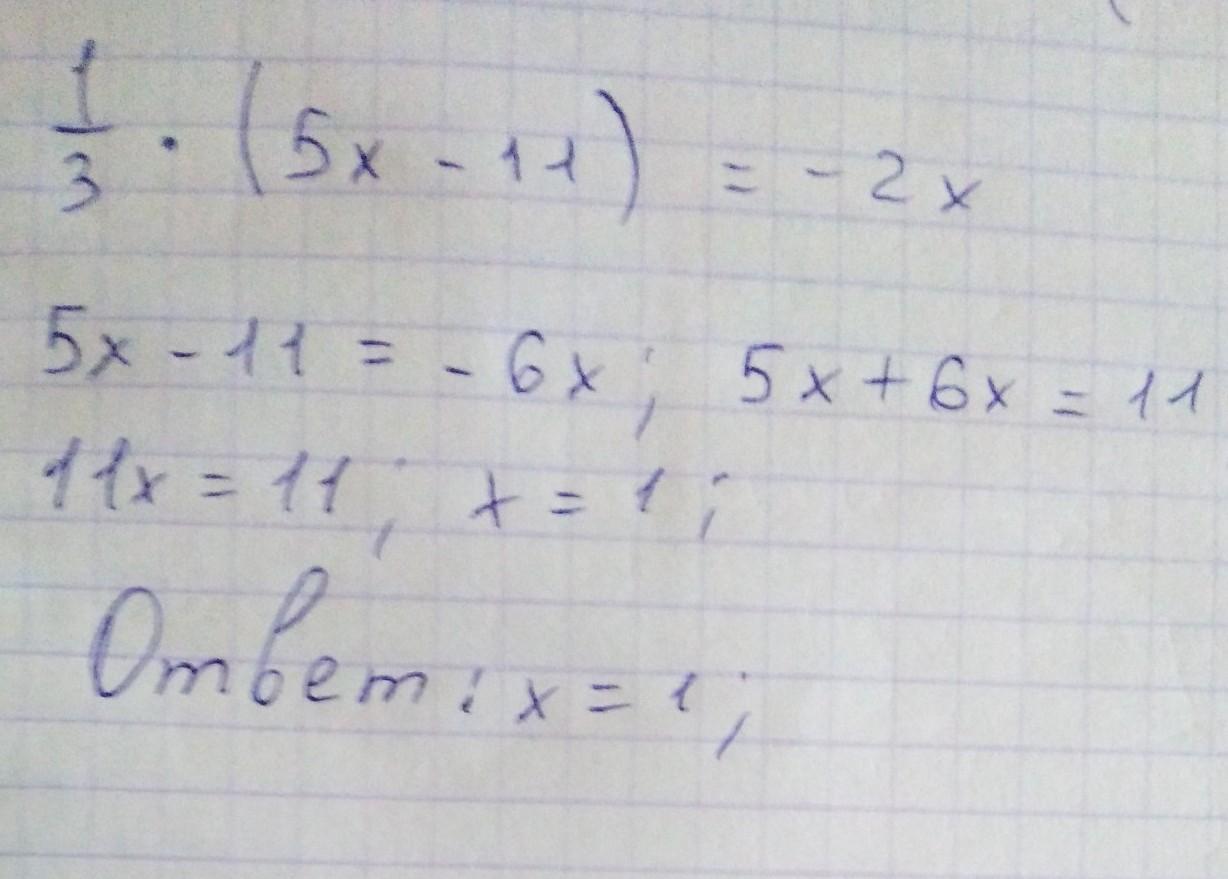 1/3 · (5x - 11) = -2x
5x - 11 = -6x; 5x + 6x = 11
11x = 11; x = 1;
Ответ: x = 1;